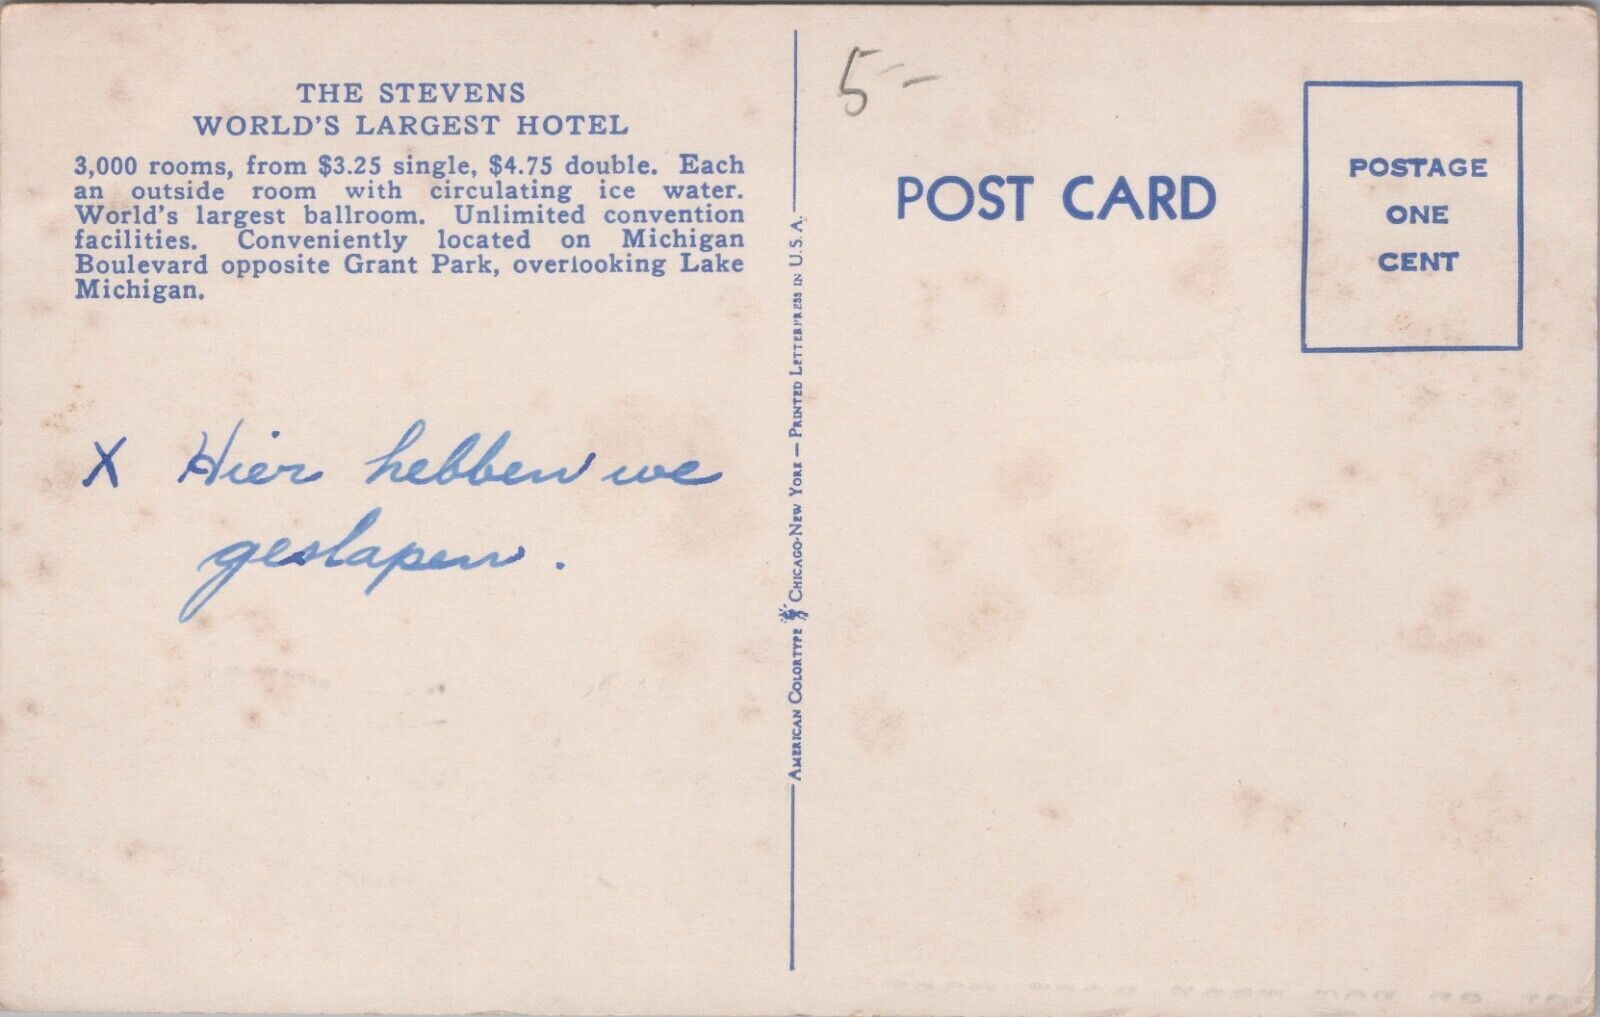 THE STEVENS
WORLD'S LARGEST HOTEL
3,000 rooms, from $3.25 single, $4.75 double. Each
an outside room with circulating ice water.
World's largest ballroom. Unlimited convention
facilities. Conveniently located on Michigan
Boulevard opposite Grant Park, overlooking Lake
Michigan.
X Hier hebben we
geslapen.
AMERICAN COLORTYPE CHICAGO-NEW YORK — PRINTED LETTERPRESS IN U.S.A.
5-
POST CARD
POSTAGE
ONE
CENT